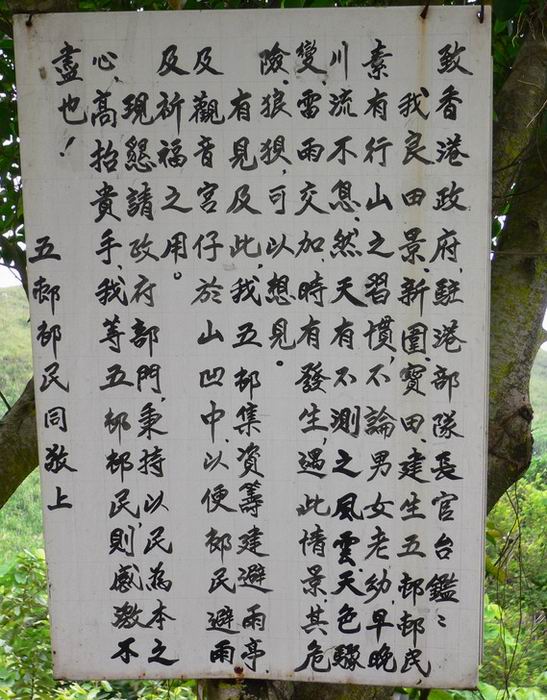 致香港政府,駐港部隊長官台鑑:
我良田景、新圍、寶田、建生五邨邨民,
素有行山之習慣,不論男女老幼,早晚
川流不息,然天有不測之風雲,天色驟
變,雷雨交加,時有發生,遇此情景,其危
險、狼狽,可以想見。
有見及此,我五邨集資籌建避雨亭,
及觀音宮仔於山凹中,以便邨民避雨
及祈福之用。
現懇請政府部門,秉持以民為本之
心,高抬貴手,我等五邨邨民,則感激不
盡也!
五邨邨民同敬上